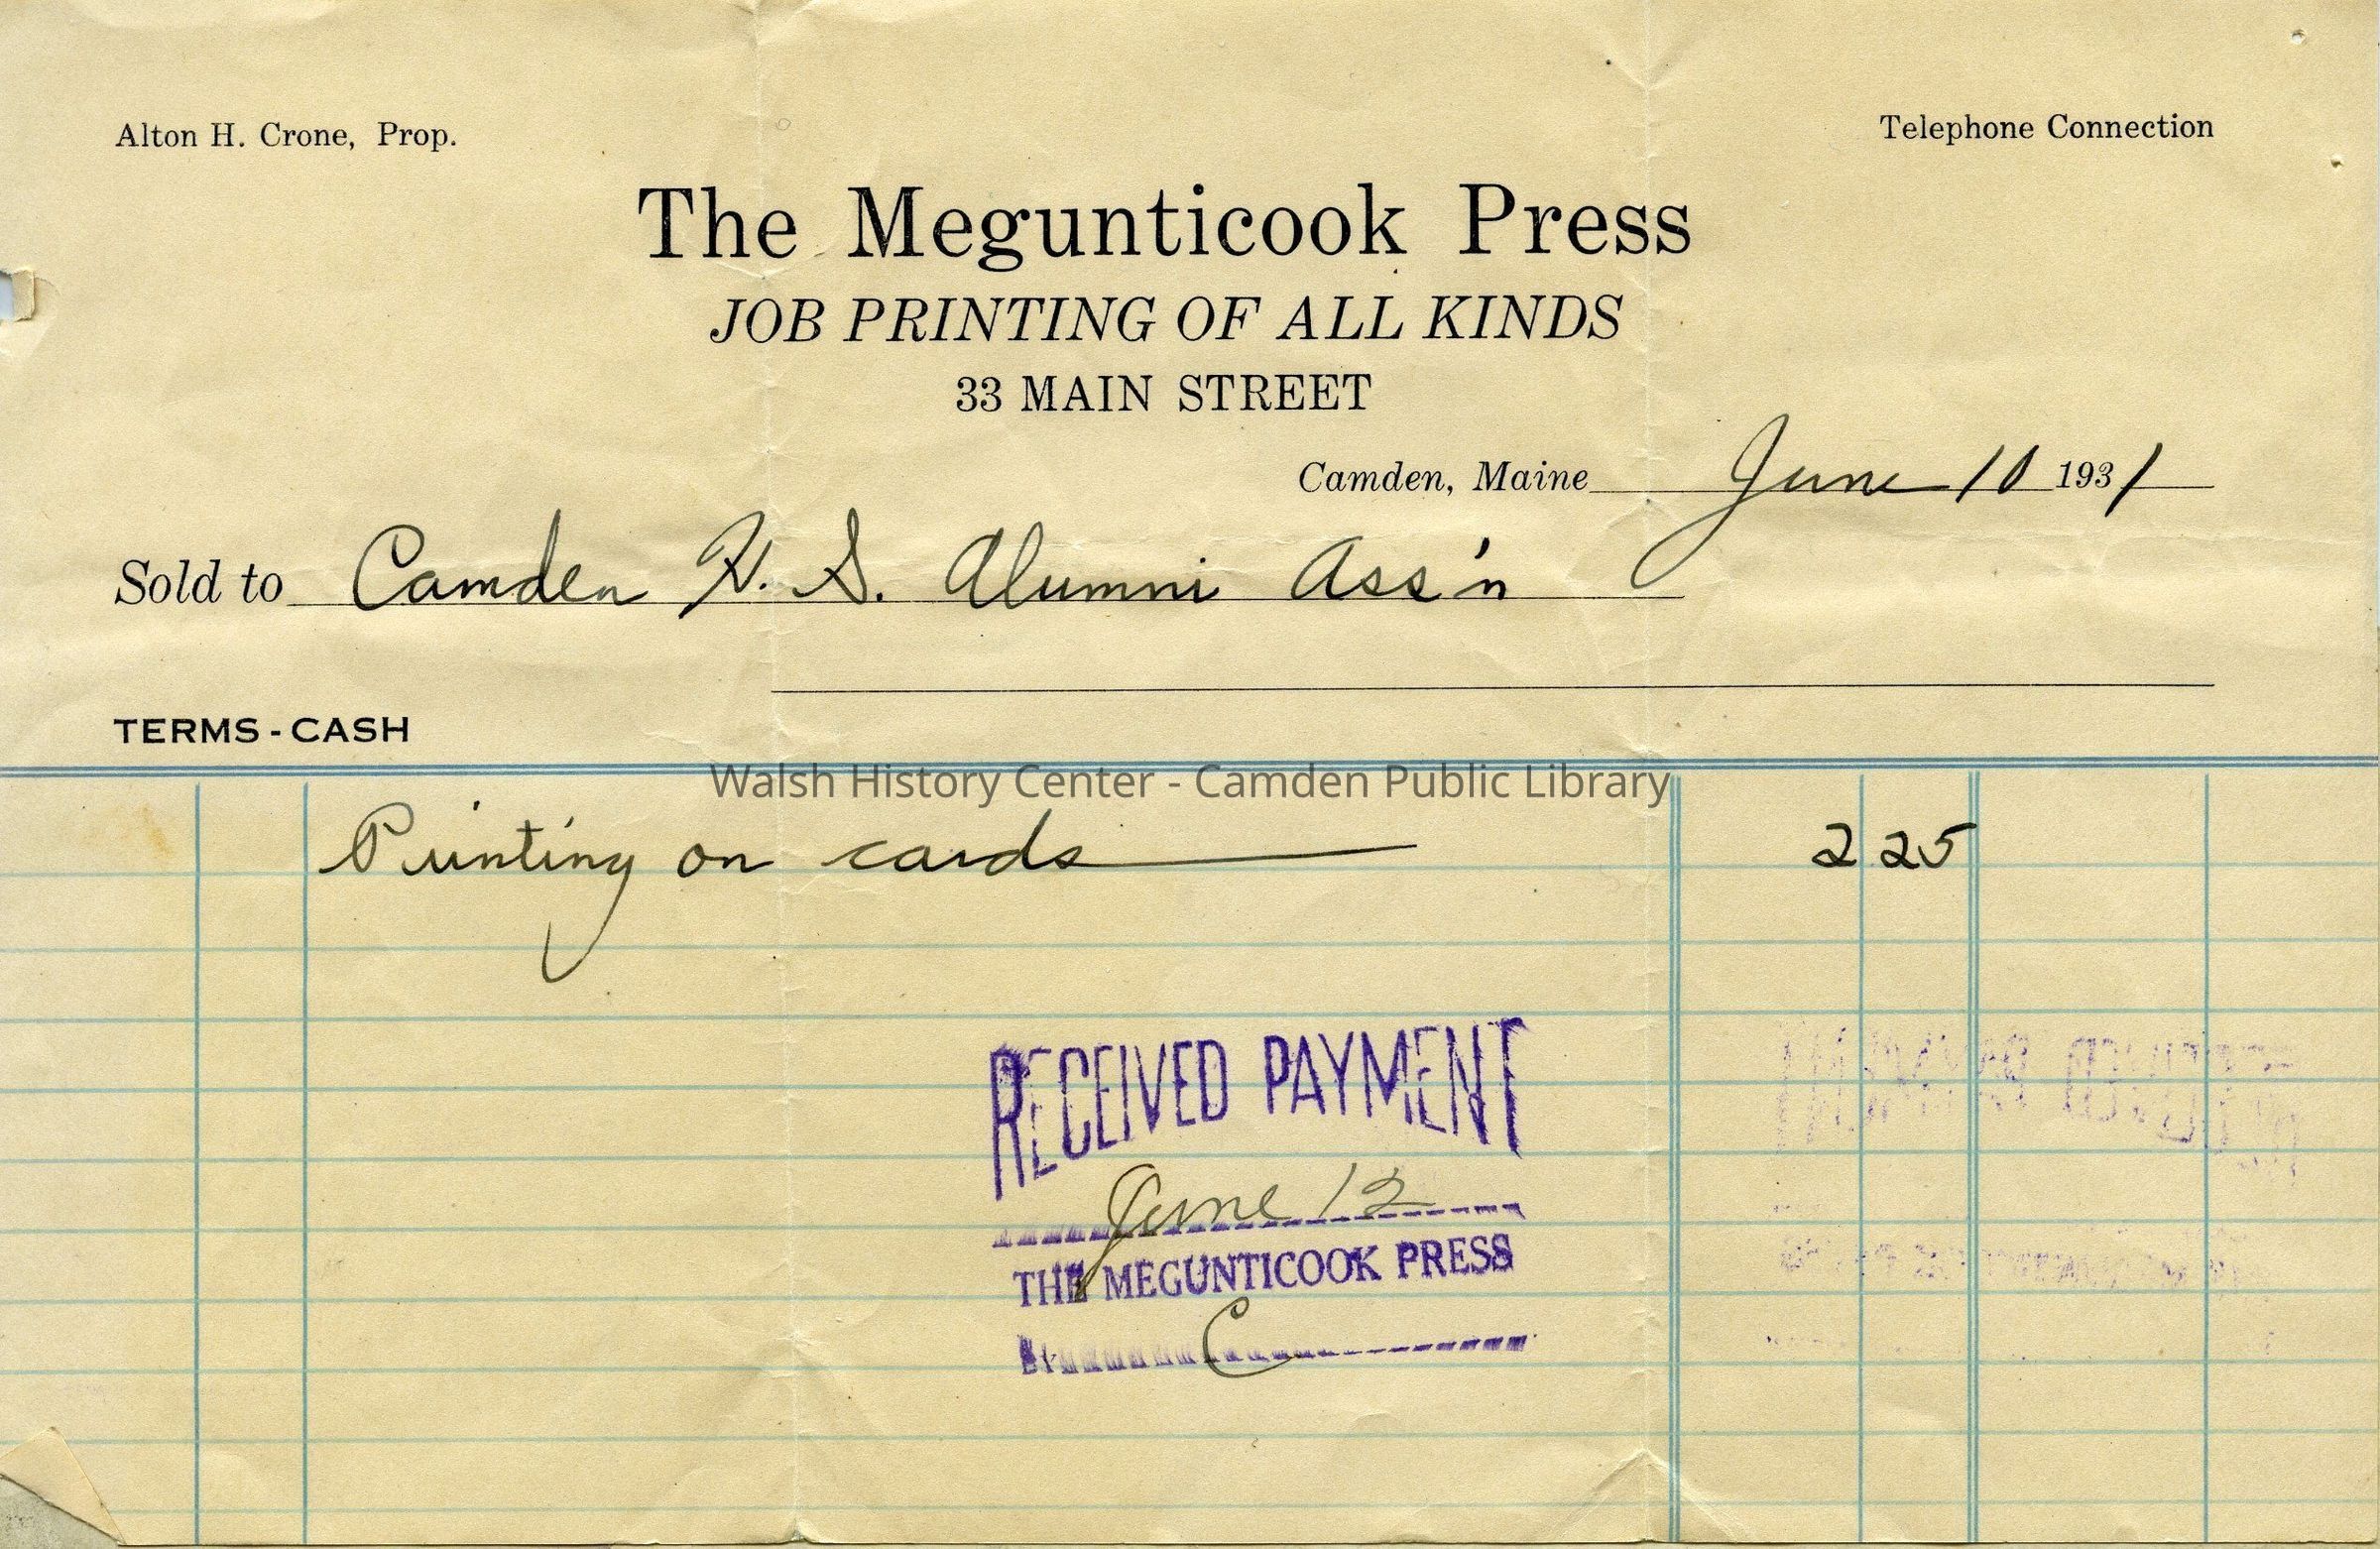 Alton H. Crone, Prop.
Telephone Connection
The Megunticook Press
JOB PRINTING OF ALL KINDS
33 MAIN STREET
Camden, Maine June 10 1931
Sold to Camden H. S. Alumni Ass'n
TERMS - CASH
Walsh History Center - Camden Public Library
Printing on cards 2 25
RECEIVED PAYMENT
June 12
THE MEGUNTICOOK PRESS
BY C